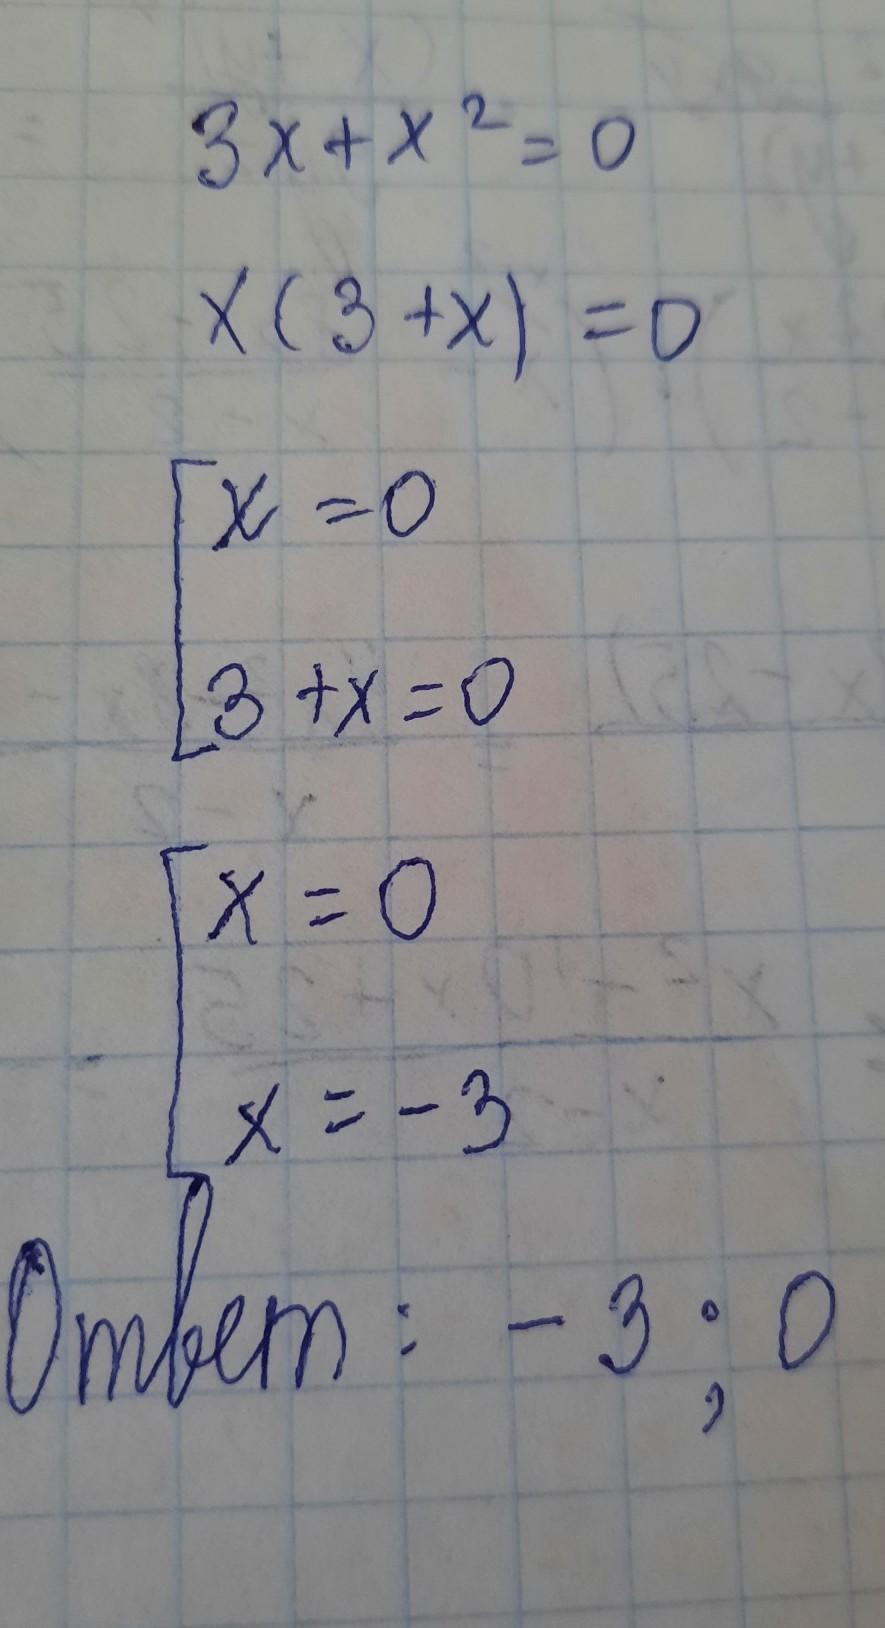 3x+x²=0
x(3+x)=0
x=0
3+x=0
x=0
x=-3
Ответ: -3; 0